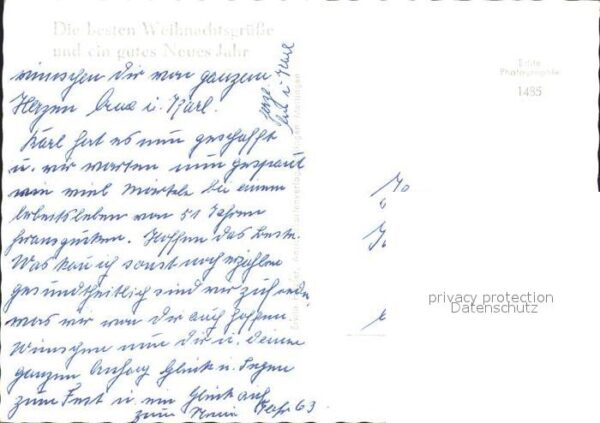 Die besten Weihnachtsgrüße
und ein gutes Neues Jahr
wünschen Dir von ganzem
Herzen u. Karl.
Karl hat es nun geschafft
u. wir warten nun gespant
wie viel bei einem
Arbeitsleben von 51 Jahren
herausgucken. Hoffen das Beste.
Was kan ich sonst noch erzählen
gesundtheitlich sind wir zufrieden
was wir von Dir auch hoffen.
Wünschen nun Dir u. Deinem
ganzen Anhang Glück u. Segen
zum Fest u. ein Glück auf
zum Neuen Jahr 63
Echte
Photographie
1485
privacy protection
Datenschutz